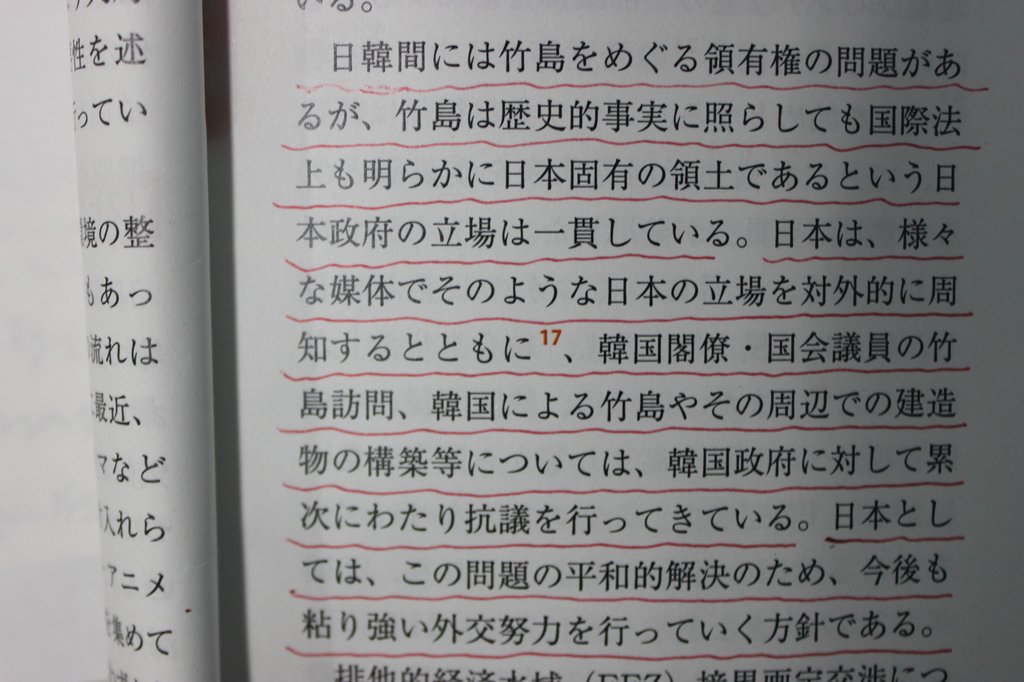 性を述
ってい
境の整
もあっ
流れは
最近、
マなど
入れら
アニメ
集めて
いる。
日韓間には竹島をめぐる領有権の問題があ
るが、竹島は歴史的事実に照らしても国際法
上も明らかに日本固有の領土であるという日
本政府の立場は一貫している。日本は、様々
な媒体でそのような日本の立場を対外的に周
知するとともに17、韓国閣僚・国会議員の竹
島訪問、韓国による竹島やその周辺での建造
物の構築等については、韓国政府に対して累
次にわたり抗議を行ってきている。日本とし
ては、この問題の平和的解決のため、今後も
粘り強い外交努力を行っていく方針である。
排他的経済水域（EEZ）境界画定交渉につ